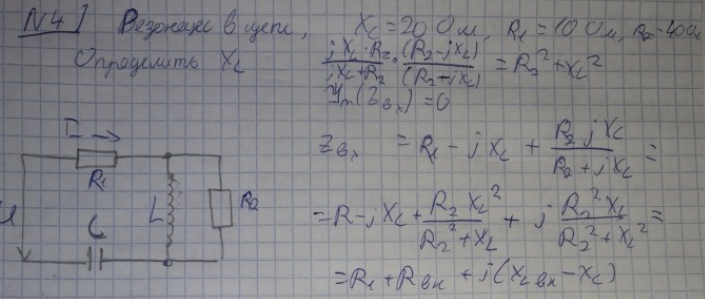 N4] Резонанс в цепи, Xc = 20 Ом, R1 = 10 Ом, R2 = 40 Ом
Определить XL
j XL · R2 / jXL + R2 · (R2 - jXL) / (R2 - jXL) = R2² + XL²
Jm(Zвх) = 0
I →
R1
U
C
L
R2
Zвх = R1 - jXc + R2 jXL / R2 + jXL =
= R - jXc + R2 XL² / R2² + XL + j R2² XL / R2² + XL² =
= R1 + Rвн + j(XLвн - Xc)